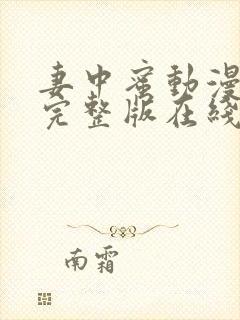 妻中蜜動漫
完整版在綫
南霜